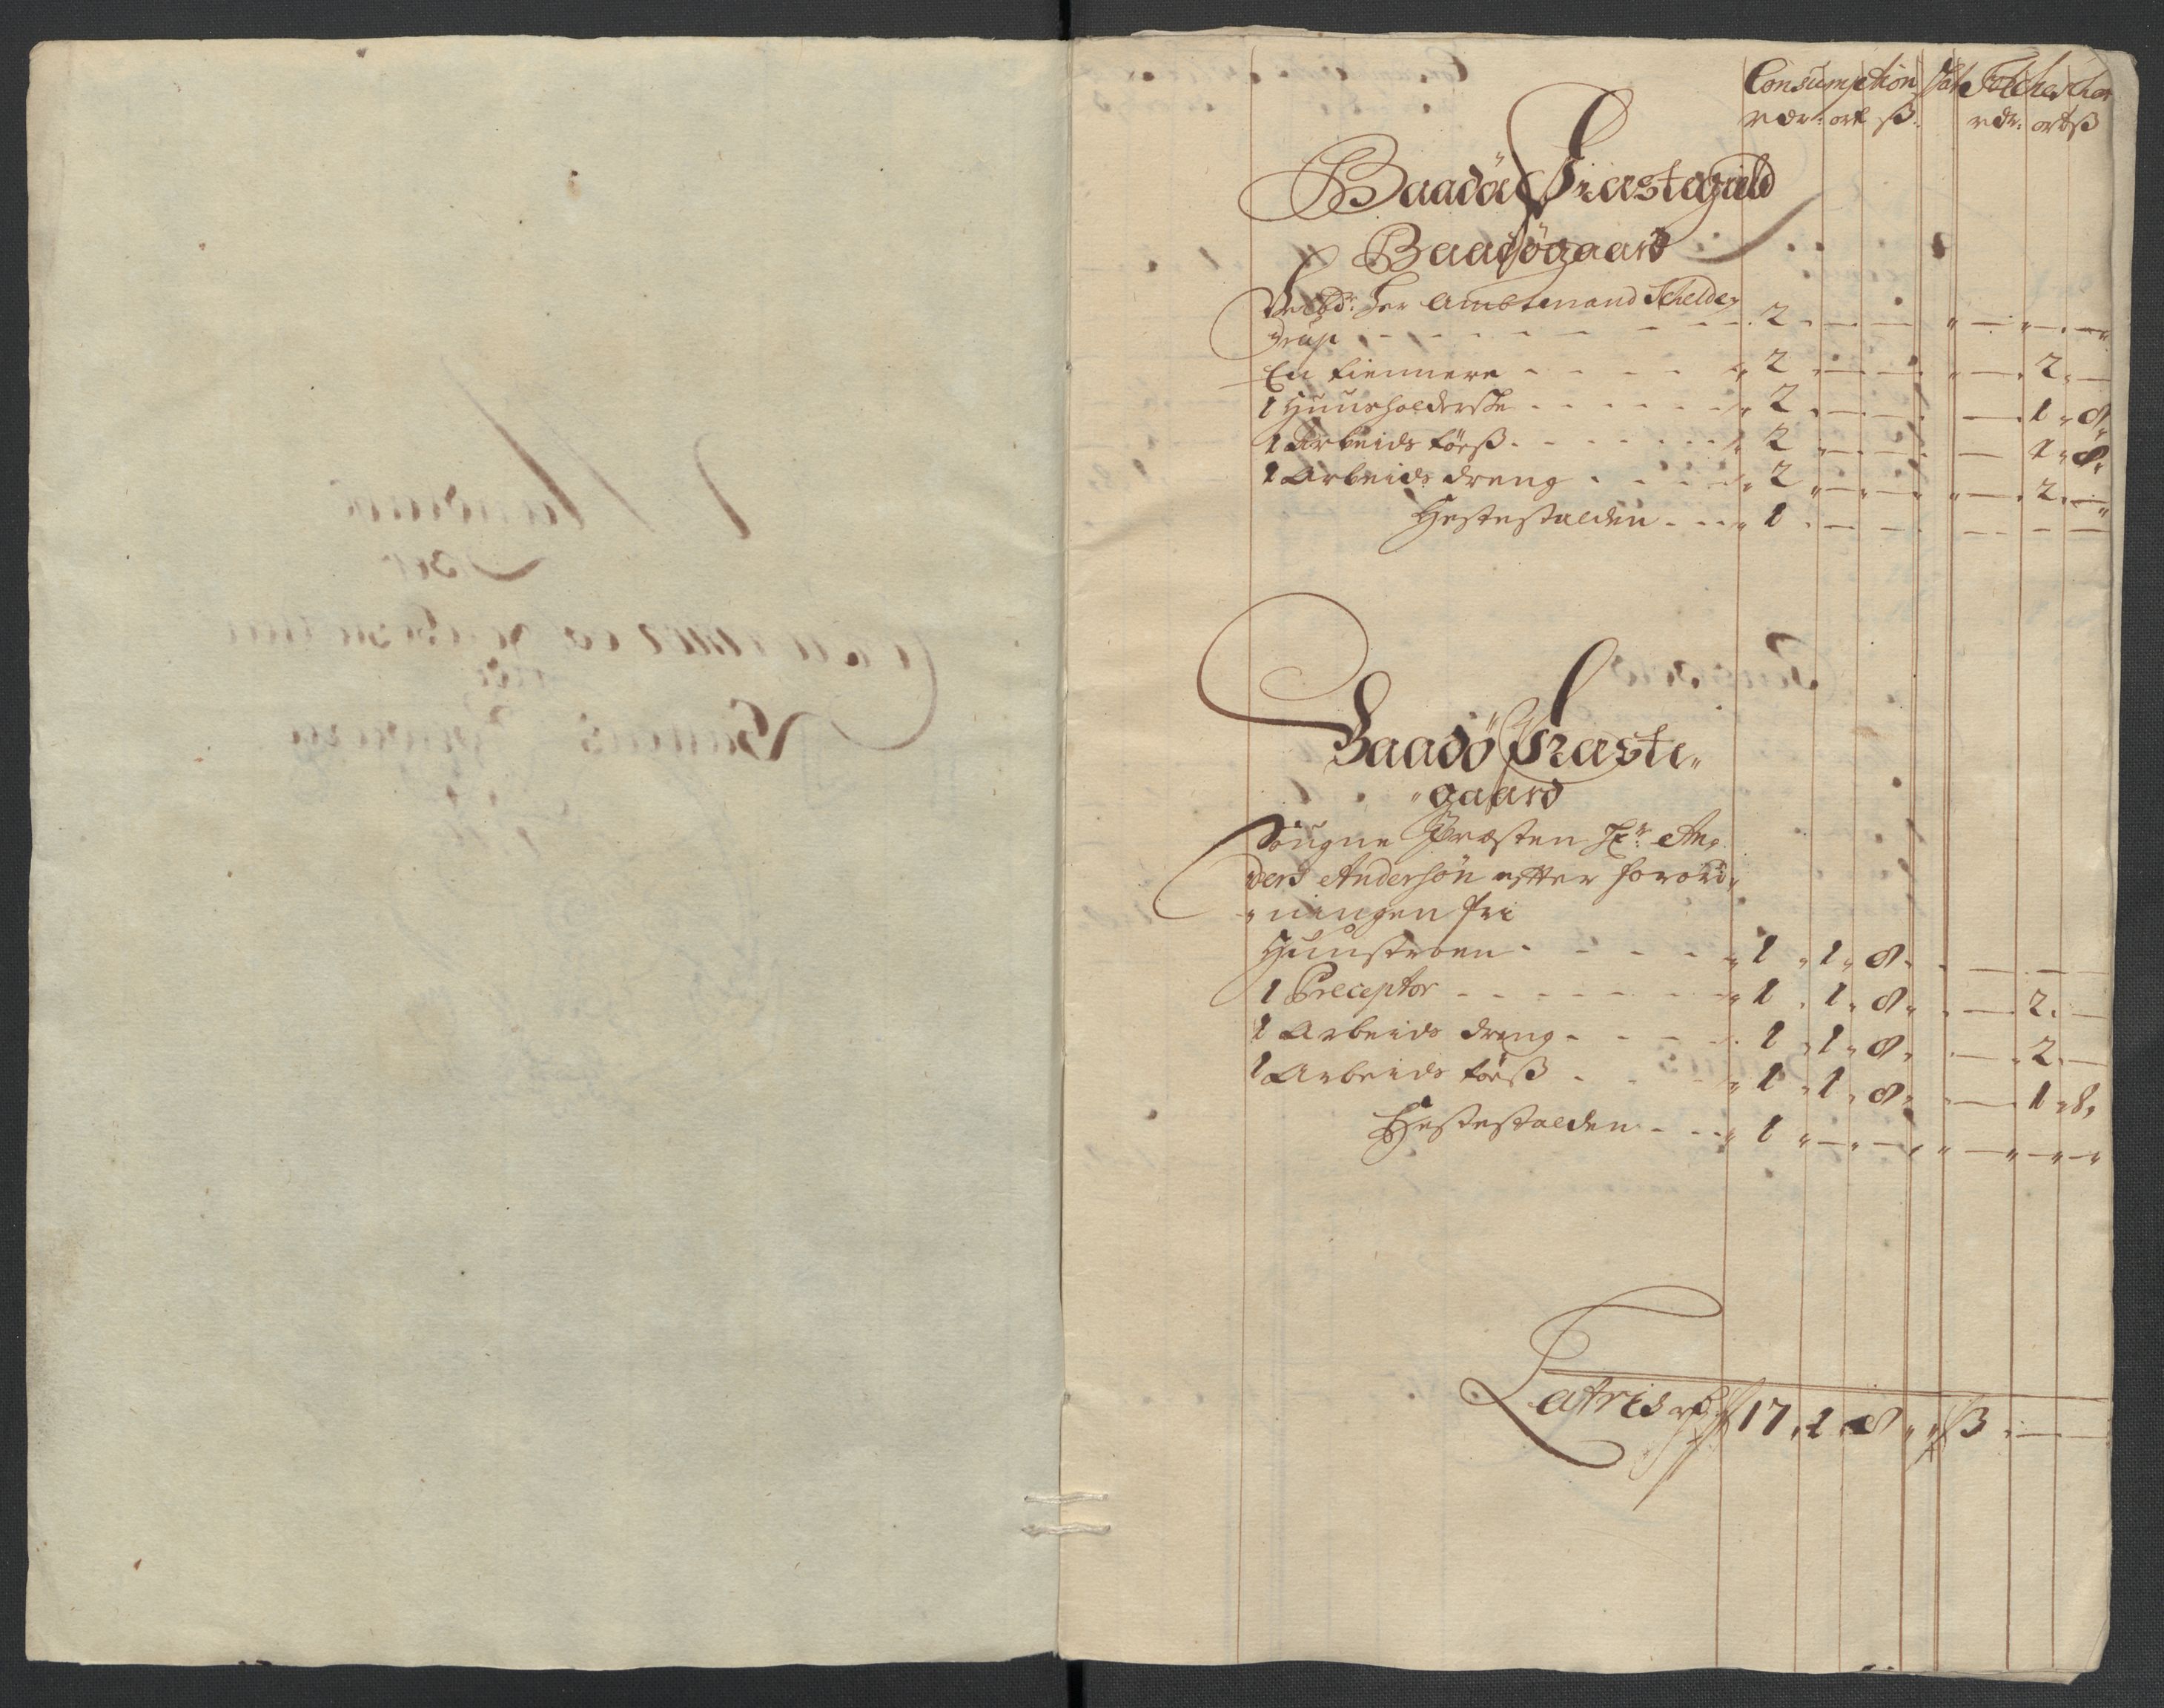 Consumption Folche Schat
rdr: ort ß. rdr: ort ß
Baadøe Præstegield
Baadøgaard
Velbr: Her Ambtmand Schelde,,
drup - - - 2 - - -
En tiennere - - - 2 - - - 2 -
1 Huusholderske - - - 2 - - - 1 8
1 Arbeids tøes - - - 2 - - - 1 8
1 Arbeids dreng - - - 2 - - - 2 -
Hestestalden - - - 1 - - -
Baadø Præste,,
,,gaard
Sougne Præsten Hr: An,,
ders Andersøn efter forord,,
,,ningen fri
Huustroen - - - 1 1 8 - - -
1 Preceptor - - - 1 1 8 - 2 -
1 Arbeids dreng - - - 1 1 8 - 2 -
1 Arbeids tøes - - - 1 1 8 - 1 8
Hestestalden - - - 1 - - -
Latris 17 1 8 3 - -